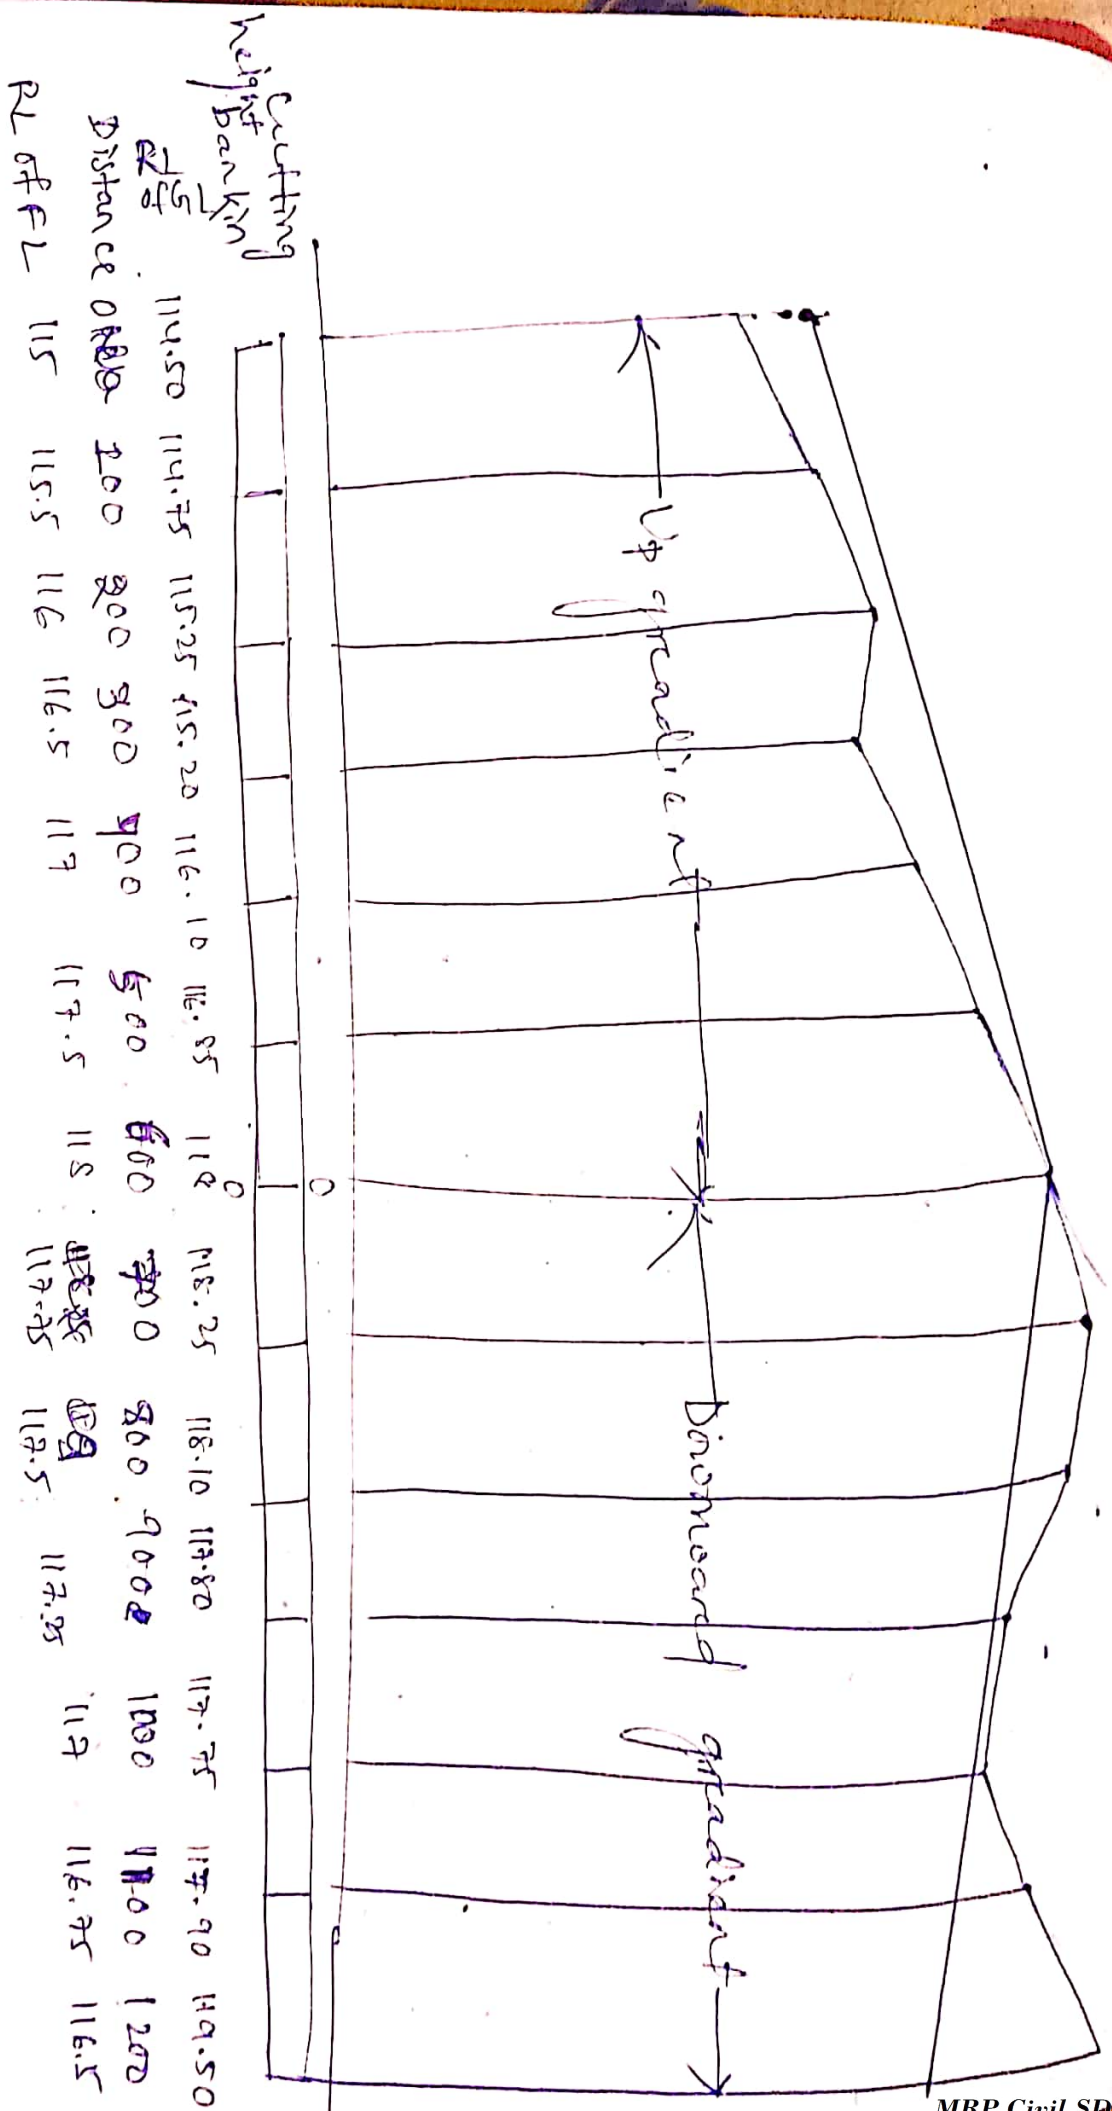 Up gradient
Downward gradient
0
0
Cutting
height bankin
RL of
114.50 114.75 115.25 115.20 116.10 116.85 118 118.25 118.10 117.80 117.75 117.90 119.50
Distance 0 100 200 300 400 500 600 700 800 900 1000 1100 1200
RL of FL 115 115.5 116 116.5 117 117.5 118 117.75 117.5 117.25 117 116.75 116.5
MRP Civil SD